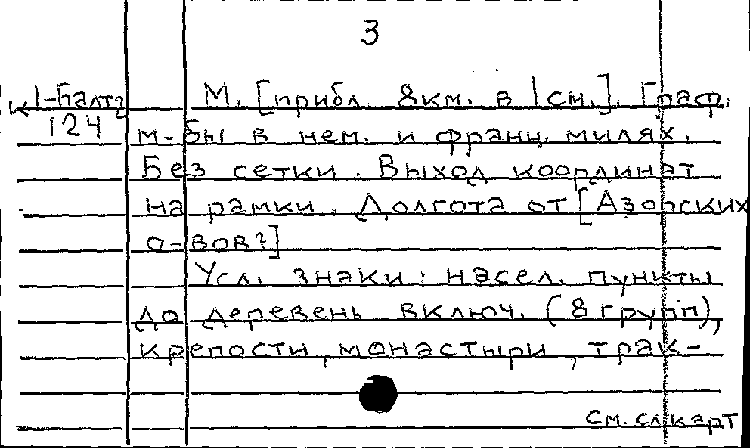 3
К1-Балт2 М. [прибл. 8км. в 1см.]. Граф.
124 м-бы в нем. и франц. милях.
Без сетки. Выход координат
на рамки. Долгота от [Азорских
о-вов?]
Усл. знаки: насел. пункты
до деревень включ. (8 групп),
крепости, монастыри, трак-
см. сл. карт